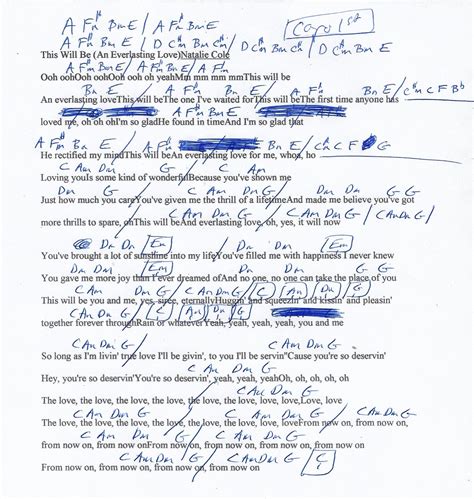 A F#m Bm E / A F#m Bm E   Capo 1st
A F#m Bm E / D C#m Bm E / D C#m Bm C#m / D C#m Bm E
This Will Be (An Everlasting Love)Natalie Cole
A F#m Bm E / A F#m Bm E / A F#m
Ooh oohOoh oohOoh ooh oh yeahMm mm mmThis will be
Bm E / A F#m Bm E / A F#m Bm E / C#m C F Bb
An everlasting loveThis will beThe one I've waited forThis will beThe first time anyone has
loved me, oh oh ohI'm so gladHe found in timeAnd I'm so glad that
A F#m Bm E / A F#m Bm E / C#m C F G
He rectified my mindThis will beAn everlasting love for me, whoa, ho
C Am Dm G
Loving youIs some kind of wonderfulBecause you've shown me
Dm G / C Am Dm G / C Am Dm G G
Just how much you careYou've given me the thrill of a lifetimeAnd made me believe you've got
C Am Dm G / C Am Dm G / C Am Dm G /
more thrills to spare, ohThis will beAnd everlasting love, oh, yes, it will now
Dm Dm Em Dm Dm Em
You've brought a lot of sunshine into my lifeYou've filled me with happiness I never knew
Dm Dm Em Dm Dm G G
You gave me more joy than I ever dreamed ofAnd no one, no one can take the place of you
C Am Dm G / C Am Dm G / C Am Dm G
This will be you and me, yes, siree, eternallyHuggin' and squeezin' and kissin' and pleasin'
C Am Dm G / C Am Dm G
together forever throughRain or whateverYeah, yeah, yeah, you and me
C Am Dm G / C Am Dm G
So long as I'm livin' true love I'll be givin', to you I'll be servin''Cause you're so deservin'
C Am Dm G
Hey, you're so deservin'You're so deservin', yeah, yeah, yeahOh, oh, oh, oh, oh
C Am Dm G
The love, the love, the love, the love, the love, the love, the love, love,Love, love
C Am Dm G / C Am Dm G
The love, the love, the love, the love, the love, the love, the love, loveFrom now on, from now on,
C Am Dm G / C Am Dm G
from now on, from now onFrom now on, from now on, from now on, from now on
C Am Dm G / C Am Dm G / C
From now on, from now on, from now on, from now on